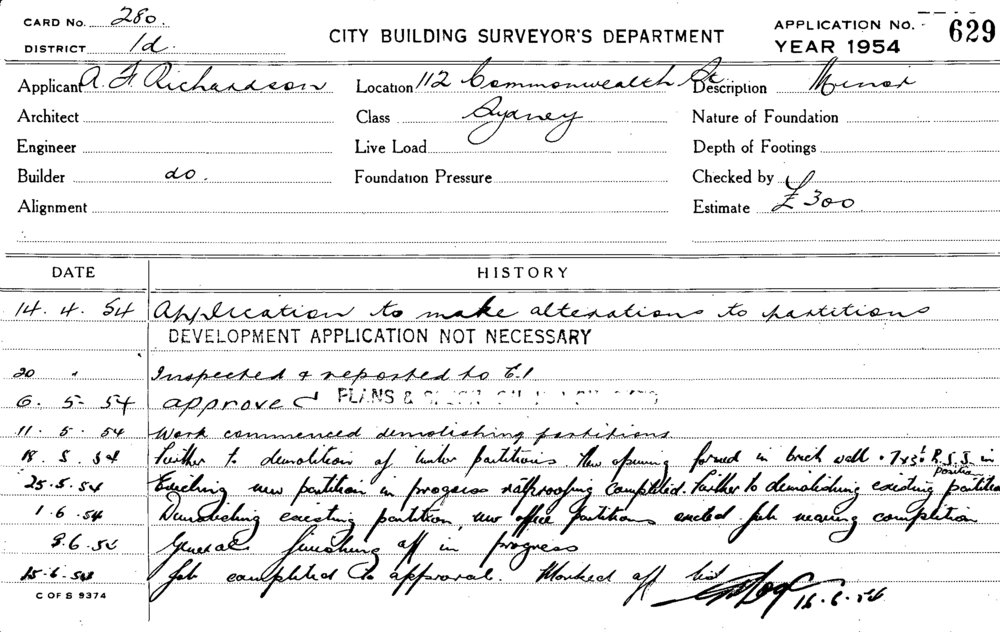 CARD No. 280. CITY BUILDING SURVEYOR'S DEPARTMENT APPLICATION NO. 629
DISTRICT 1d. YEAR 1954
Applicant A. F. Richardson Location 112 Commonwealth St Description Minor
Architect Class Sydney Nature of Foundation
Engineer Live Load Depth of Footings
Builder do. Foundation Pressure Checked by
Alignment Estimate £300
DATE HISTORY
14. 4. 54 Application to make alterations to partitions
DEVELOPMENT APPLICATION NOT NECESSARY
20 " Inspected & reported to
6. 5. 54 approved PLANS &
11. 5. 54 Work commenced demolishing partitions
18. 5. 54 Further to demolition of partitions. New opening formed in brick wall R.S.J. in
position
25.5.54 Erecting new partition in progress ratproofing completed. Further to demolishing existing partition
1.6.54 Demolishing existing partition, new office partitions erected Job nearing completion
General finishing off in progress
Job completed to approval. Marked off list
C OF S 9374 16.6.54